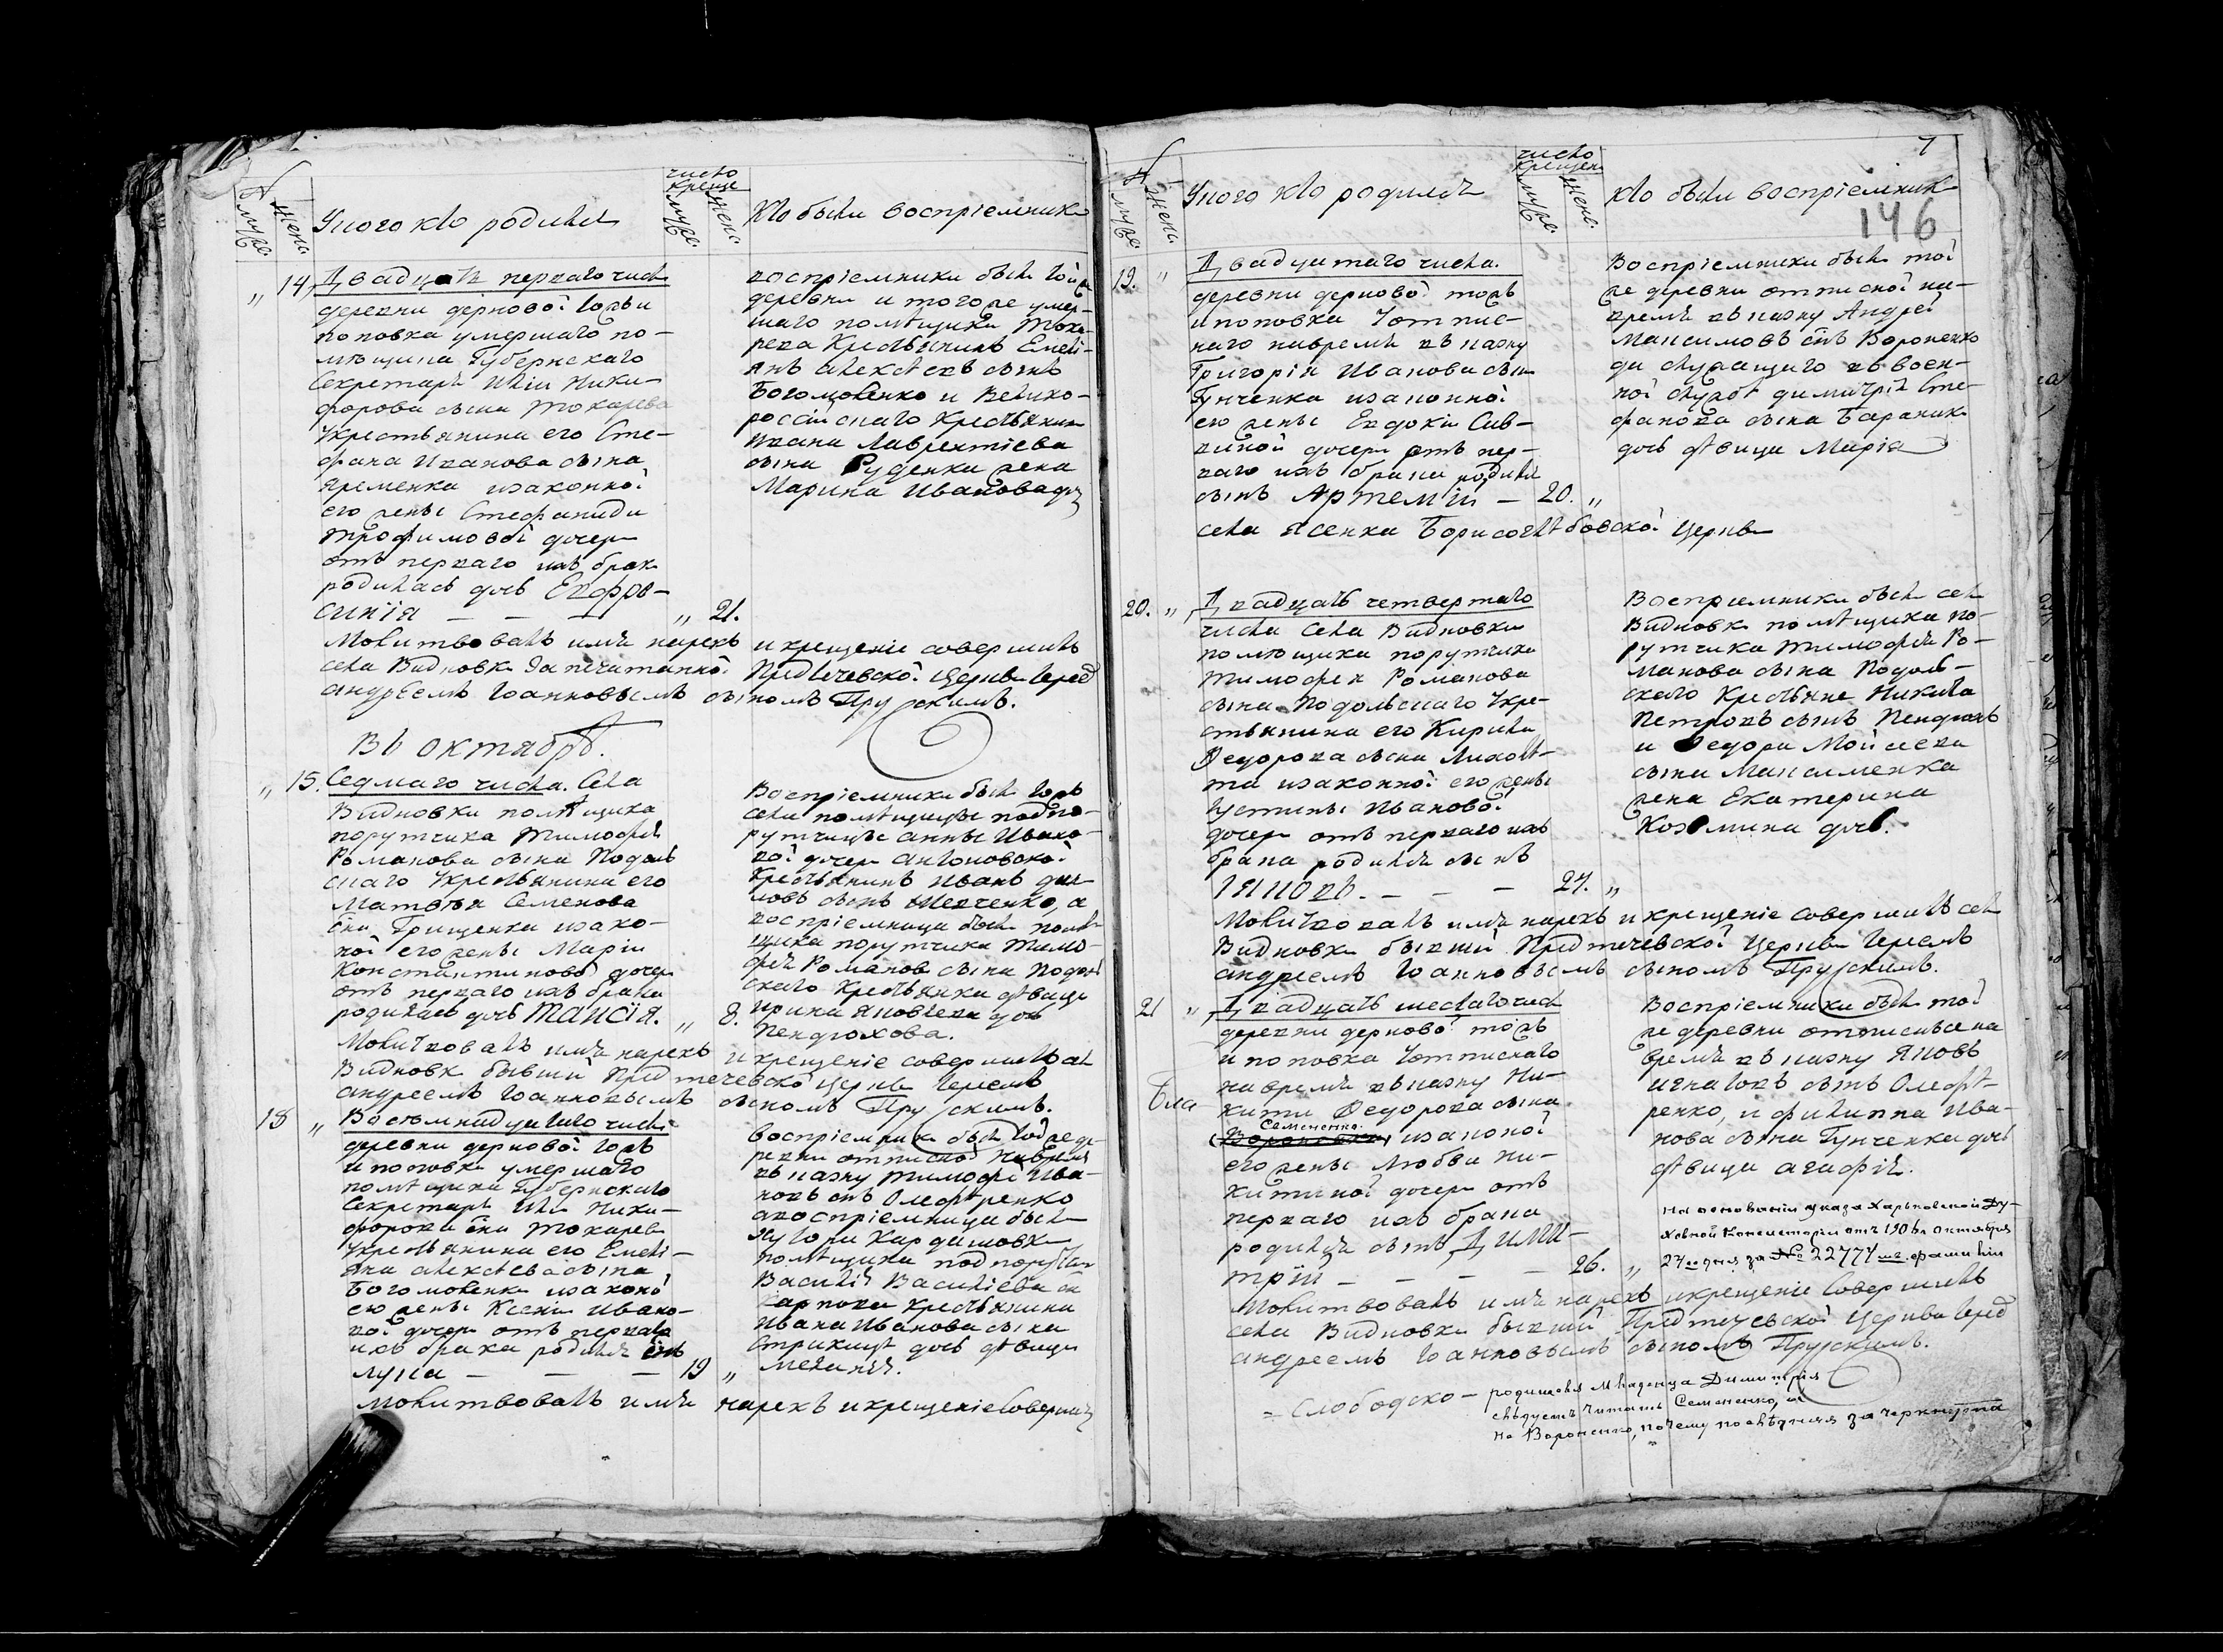 №
муже.
жено.
У кого кто родился
число
креще
муже.
жено.
Кто были воспріемники
„ 14, Двадцать перваго числа
деревни дерновой тожъ и
поповка умершаго по-
мѣщика Губернскаго
Секретаря Иліи Ники-
форова сына Токарева
у крестьянина его Сте-
фана Иванова сына
Яременка и законной
его жены Стефаниды
Трофимовой дочери
отъ перваго ихъ брака
родилась дочь Евфро-
синія — — — „ 21.
воспріемники были той же
деревни и того же умер-
шаго помѣщика Тока-
рева Крестьянинъ Емелі-
янъ Алексѣевъ сынъ
Богомоленко и Велико-
россійскаго Крестьянина
Ивана Лаврентіева
сына Руденка жена
Марина Иванова дочь
Молитвовалъ имя нарекъ и крещеніе совершилъ
села Видновки Запечатанной Предтечевской Церкви Іерей
Андрей Іоанновымъ сыномъ Прускимъ.
Въ октябрѣ.
„ 15. Седмаго числа. Села
Видновки помѣщика
порутчика Тимофея
Романова сына Подоль
скаго у крестьянина его
Матвѣя Семенова
сына Грищенка и зако-
ной его жены Маріи
Константиновой дочери
отъ перваго ихъ брака
родилась дочь Таисія. „ 8.
Воспріемники были тожъ
села помѣщицы подпо-
рутчицы Анны Ивано-
вой дочери Антоновской
Крестьянинъ Иванъ дани-
ловъ сынъ Шевченко, а
воспріемница была помѣ
щика порутчика Тимо-
фея Романова сына Подоль
скаго Крестьянка дѣвица
Ирина Яковлева дочь
Пендюхова.
Молитвовалъ имя нарекъ и крещеніе совершилъ сел
Видновк бывшій Предтечевской Церкви Іереемъ
Андреемъ Іоанновымъ сыномъ Прускимъ.
18 „ Восѣмнадцатаго числа
деревни дерновой тожъ
и поповки умершаго
помѣщика Губернскаго
Секретаря Иліи Ники-
форова сына Токарева
у крестьянина его Емелі-
яна Алексѣева сына
Богомоленка и законой
его жены Ксеніи Ивано-
вой дочери отъ перваго
ихъ брака родился сынъ
Лука — — — 19 „
воспріемники были той же де
ревни отписной на время
въ казну Тимофей Ива-
новъ снъ Олефѣренко
а воспріемница была
хутора Кардашовки
помѣщика подпорутчи
Василія Василіева сн
Карпова крестьянина
Ивана Иванова сына
дочь дѣвица
Меланія.
Молитвовалъ имя нарекъ и крещеніе совершилъ
7
№
муже.
жено.
У кого кто родился
число
крещен
муже.
жене.
кто были воспріемник
146
19. „ Двадцатаго числа.
деревни дерновой тожъ
и поповка у отпис-
наго на время въ казну
Григорія Иванова сына
Гунченка и законной
его жены Евдокіи Сав-
виной дочери отъ пер-
ваго ихъ брака родился
сынъ Артемій — 20. „
Воспріемники были той
же деревни отписной на-
время въ казну Андрей
Максимовъ снъ Вороненко
да служащаго въ воен-
ной службѣ димитрія Сте-
фанова сына Бараник
дочь дѣвица Марія
села Ясенка Борисоглѣбовской Церкви
20. „ Двадцать четвертаго
числа села Видновки
помѣщика порутчика
Тимофея Романова
сына Подольскаго у кре-
стьянина его Кирила
Федорова сына
и законной его жены
Устины Ивановой
дочери отъ перваго ихъ
брака родился сынъ
Іяковъ. — — — 27. „
Воспріемники были села
Видновк помѣщика по-
рутчика Тимофея Ро-
манова сына Подоль-
скаго Крестьяне Никита
Петровъ сынъ Пендюхъ
и Федора Мойсеева
сына Максименка
жена Екатерина
Козмина дочь.
Молитвовалъ имя нарекъ и крещеніе совершилъ сел
Видновки бывшій Предтечевской Церкви Іереемъ
Андреемъ Іоанновымъ сыномъ Прускимъ.
21 „ Двадцать шестаго числ
деревни дерновой тожъ
и поповка у отписнаго
на время въ казну Ни-
киты Федорова сына
Семененко.
(Вороненка) и законой
его жены Любви Ни-
китиной дочери отъ
перваго ихъ брака
родился сынъ Дими-
трій — — — — 26. „
Воспріемники были той
же деревни отписные на
время въ казну Яковъ
Игнатовъ сынъ Олефѣ-
ренко, и Филиппа Ива-
нова сына Гунченка дочь
дѣвица Агафія.
На основаніи указа Харьковской Ду-
ховной Консисторіи отъ 1906 г. октября
27го дня за № 22777мъ фамилія
Молитвовалъ имя нарекъ и крещеніе совершилъ
села Видновки бывшій Предтечевской Церкви Іерей
Андреемъ Іоанновымъ сыномъ Прускимъ.
Бла
= Слободско-
родителя младенца Димитрія
слѣдуетъ читать Семененко, а
не Вороненко, почему послѣдняя зачеркнута